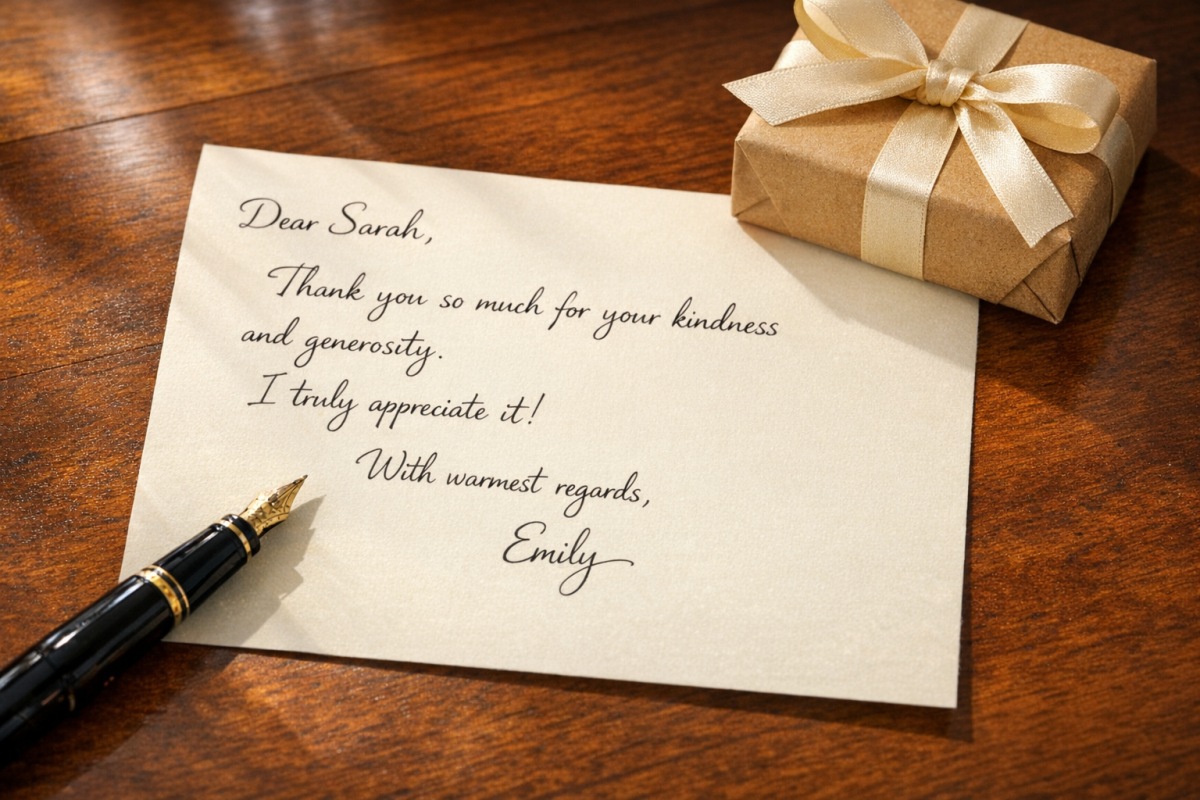 Dear Sarah,
Thank you so much for your kindness
and generosity.
I truly appreciate it!
With warmest regards,
Emily